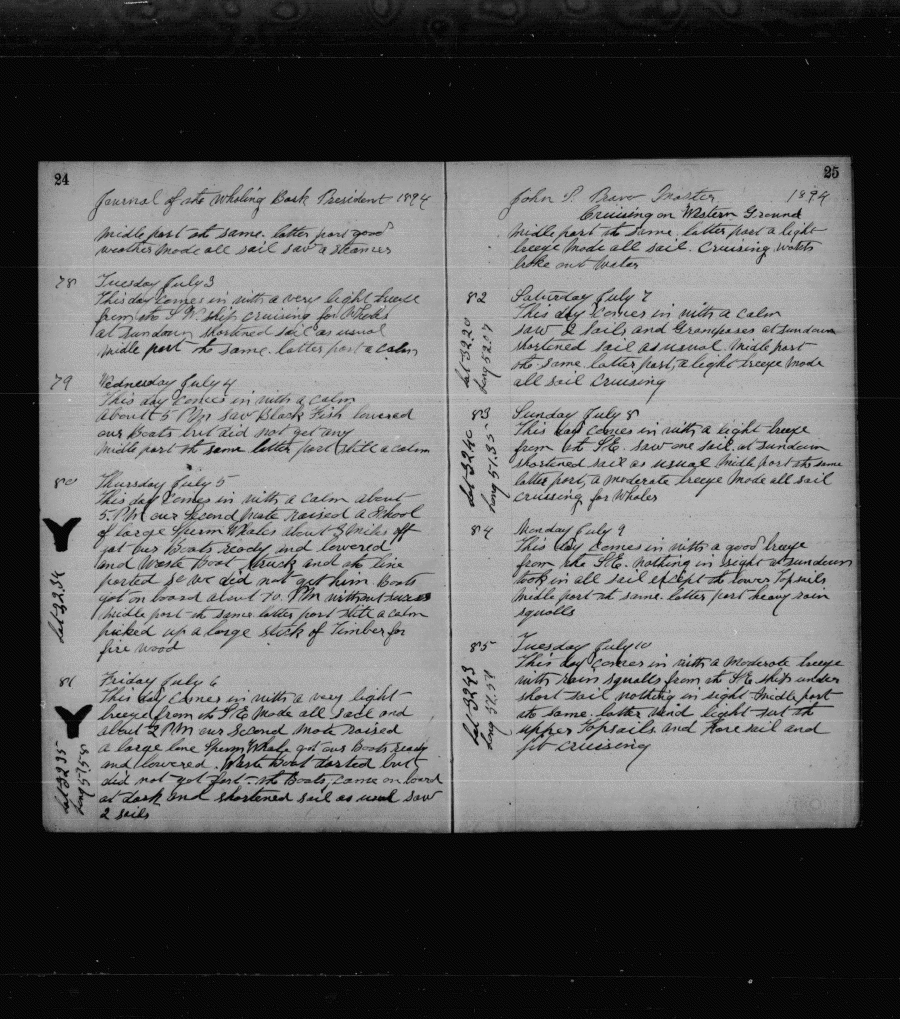 24
Journal of the Whaling Bark President 1894
Middle part the same. latter part good
weather Made all sail saw a steamer
78 Tuesday July 3
This day comes in with a very light breeze
from the S.W. ship cruising for Whales
at sundown shortened sail as usual
Midle part the same. latter part a calm
79 Wednesday July 4
This day comes in with a calm
about 5 PM saw Black Fish lowered
our Boats but did not get any
Midle part the same latter part still a calm
80 Thursday July 5
This day comes in with a calm about
5. PM our Second Mate raised a School
of large Sperm Whales about 3 Miles off
got our Boats ready and lowered
and Waste Boat struck and the line
parted so we did not get him Boats
got on board about 10. PM without
Midle part the same. latter part still a calm
picked up a large stick of Timber for
fire wood
Lat 32.34
81 Friday July 6
This day comes in with a very light
breeze from the S.E. Made all sail and
about 2 PM our Second Mate raised
a large lone Sperm Whale got our Boats ready
and lowered. Waste Boat darted but
did not get fast. the Boats came on board
at dark and shortened sail as usual saw
2 sails
Lat 32.35
Long 51.58
25
John S. Master 1894
Cruising on Western Ground
Midle part the same. latter part a light
breeze Made all sail. Cruising
broke out Water
82 Saturday July 7
This day comes in with a calm
saw 2 sails and Grampases at sundown
shortened sail as usual. Midle part
the same. latter part, a light breeze Made
all sail Cruising
Lat 32.20
Long 52.07
83 Sunday July 8
This day comes in with a light breeze
from the S.E. saw one sail. at sundown
shortened sail as usual Midle part the same
latter part, a moderate breeze Made all sail
cruising for Whales
Lat 32.40
Long 51.35
84 Monday July 9
This day comes in with a good breeze
from the S.E. nothing in sight at sundown
took in all sail except the lower Topsails
Midle part the same. latter part heavy rain
squalls
85 Tuesday July 10
This day comes in with a Moderate breeze
with rain squalls from the S.E. ship under
short sail nothing in sight Midle part
the same. latter Wind light set the
upper Topsails and Fore sail and
jib cruising
Lat 32.43
Long